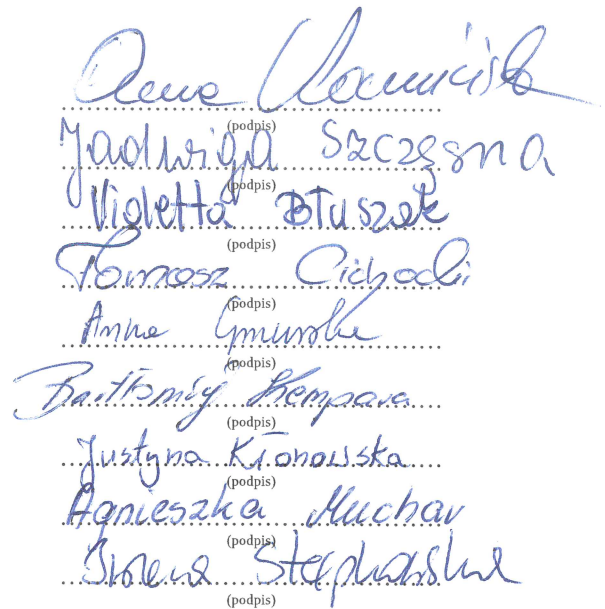 Anna
(podpis)
Jadwiga Szczęsna
(podpis)
Violetta Błuszek
(podpis)
Tomasz Cichocki
(podpis)
Anna Gmurska
(podpis)
Bartłomiej
(podpis)
Justyna Kłonowska
(podpis)
Agnieszka Muchar
(podpis)
(podpis)